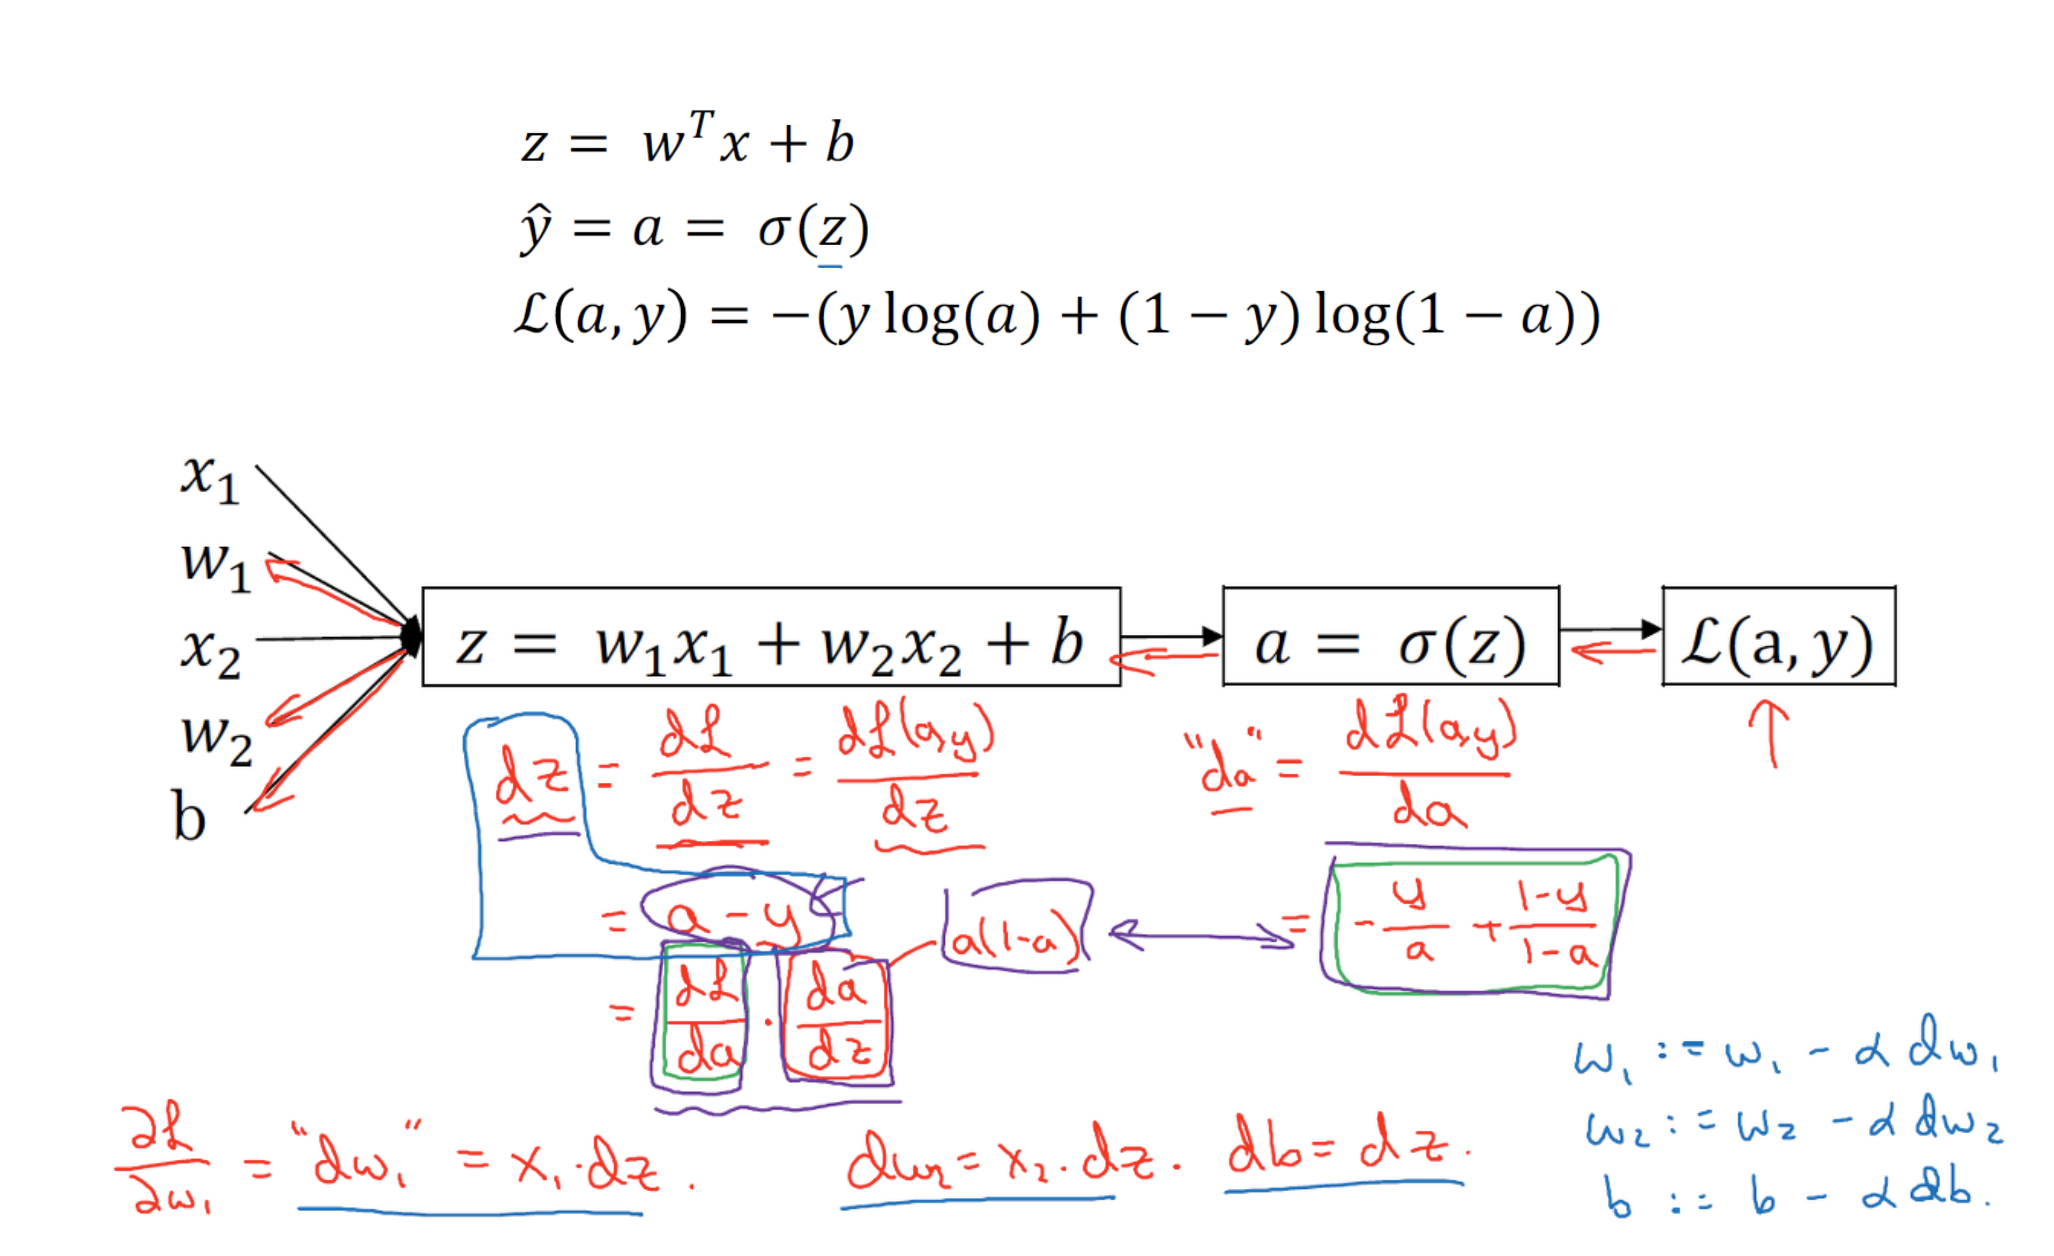 z = wᵀx + b
ŷ = a = σ(z)
ℒ(a, y) = −(y log(a) + (1 − y) log(1 − a))
x₁
w₁
x₂
w₂
b
z = w₁x₁ + w₂x₂ + b
a = σ(z)
ℒ(a, y)
dz = dℒ/dz = dℒ(a,y)/dz
= a − y
= dℒ/da · da/dz
a(1−a)
"da" = dℒ(a,y)/da
= −y/a + (1−y)/(1−a)
∂ℒ/∂w₁ = "dw₁" = x₁·dz.
dw₂ = x₂·dz.
db = dz.
w₁ := w₁ − α dw₁
w₂ := w₂ − α dw₂
b := b − α db.